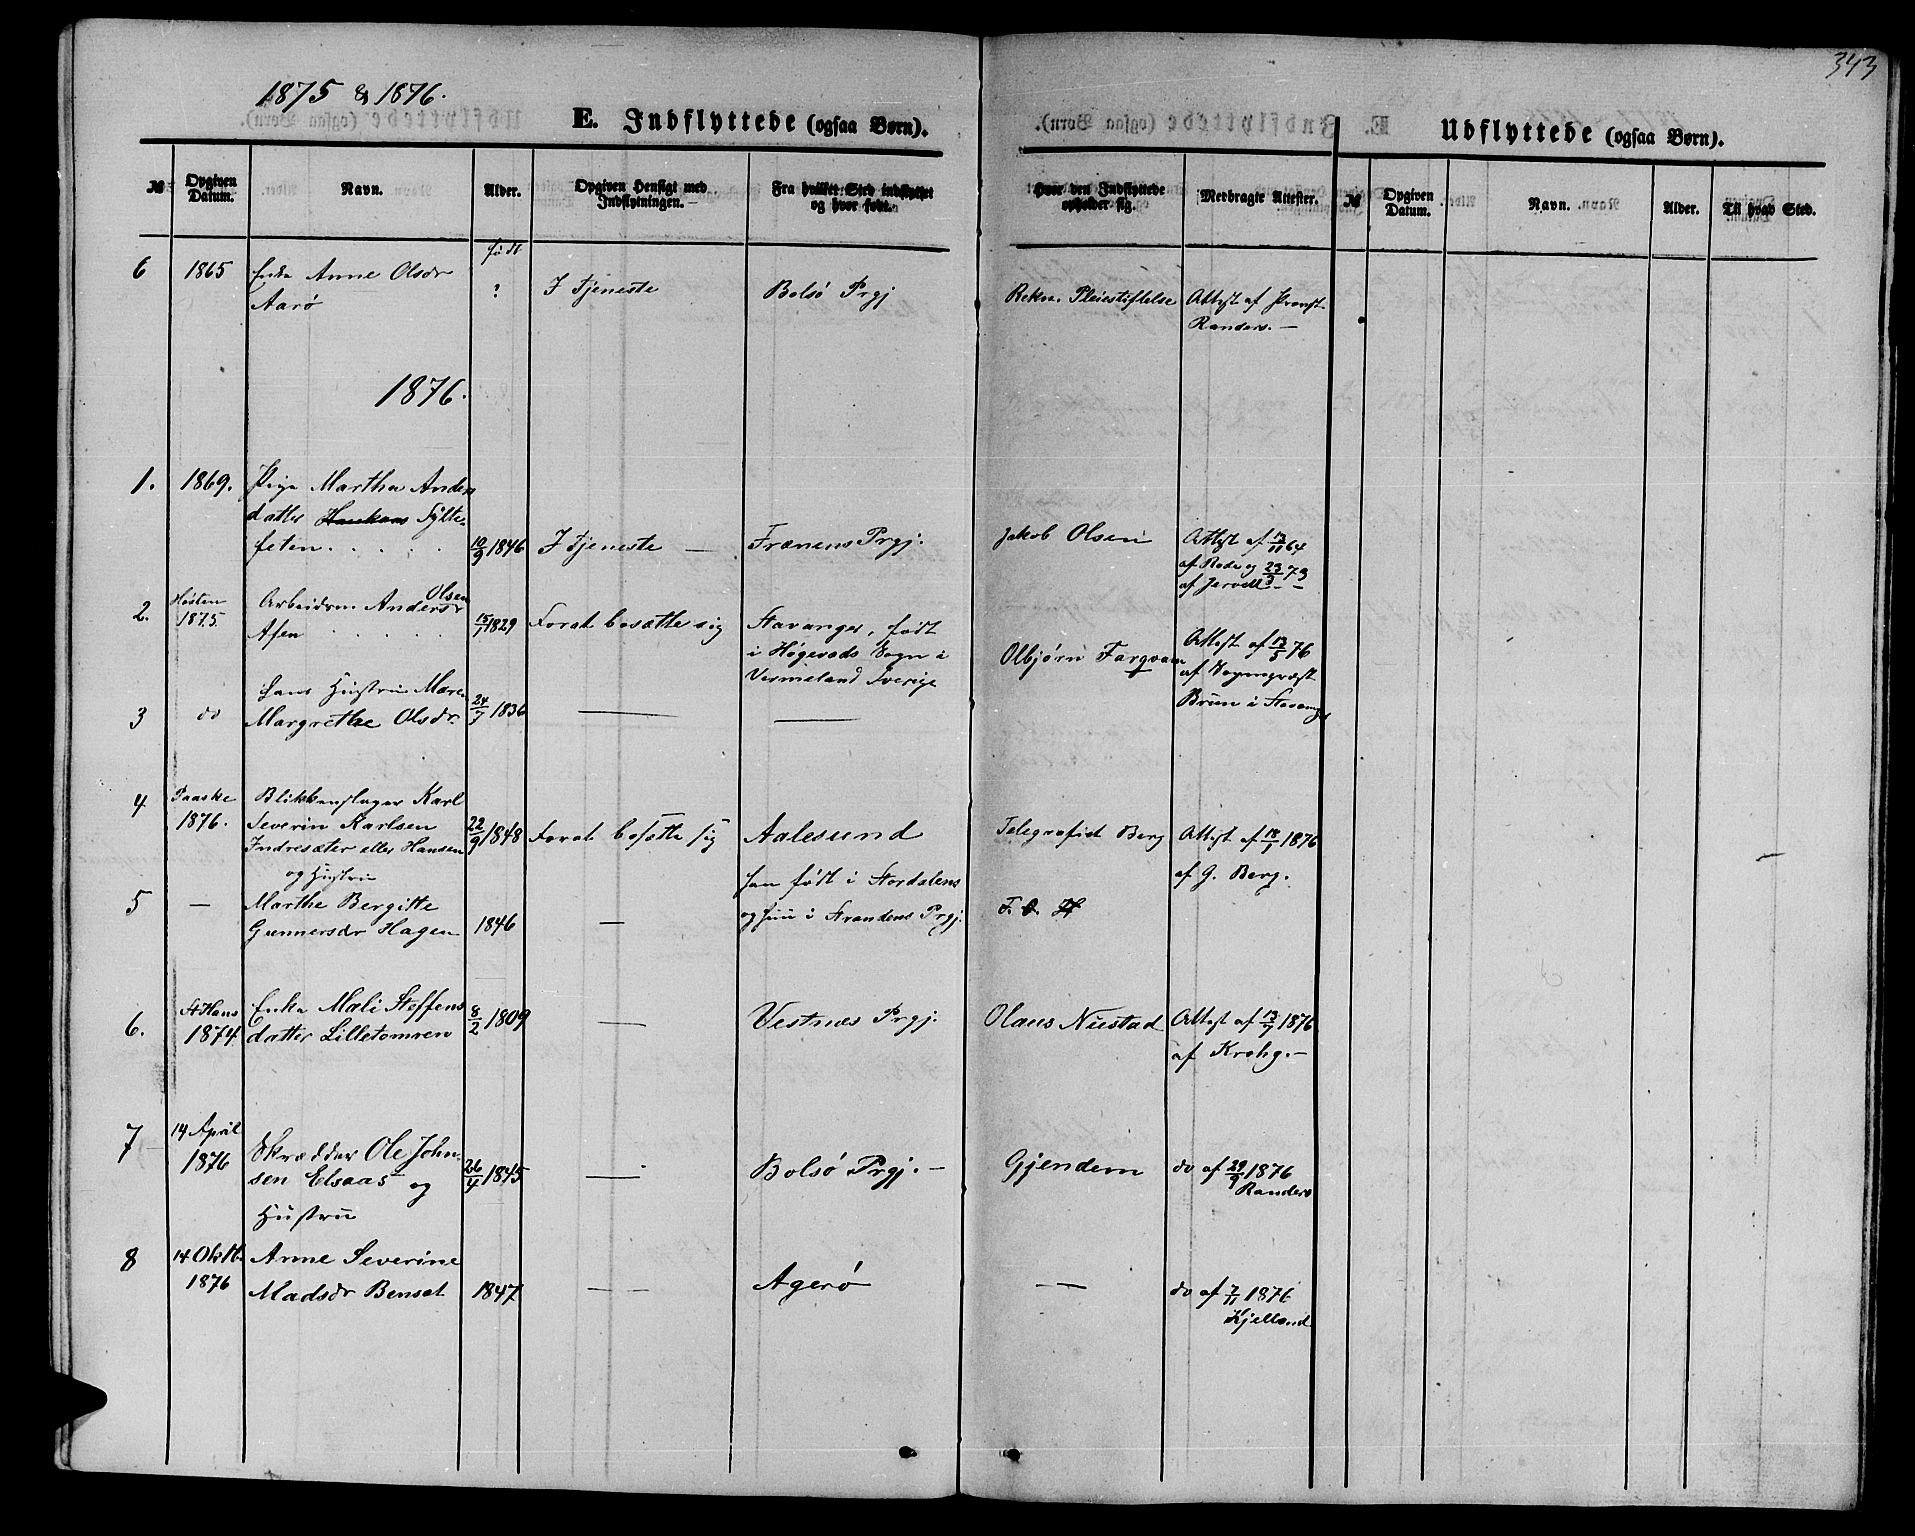 343
1875 & 1876.
E. Indflyttede (ogsaa Børn).
Udflyttede (ogsaa Børn).
№ Opgiven Datum. Navn. Alder. Opgiven Hensigt med Indflytningen. Fra hvilket Sted indflyttet og hvor født. Hvor den Indflyttede opholder sig. Medbragte Attester. № Opgiven Datum. Navn. Alder. Til hvad Sted.
født
6 1865 Enke Anne Olsdr ? I Tjeneste Bolsø Prgj Rekn. Pleiestiftelse Attest af Provst
Aarø Randers. —
1876.
1. 1869. Pige Martha Anders
datter Haukaas Sylte-
feten. . . . . 10/9 1846 I Tjeneste — Frænens Prgj. Jakob Olsen Attest af 13/11 64
af Rode og 23/3 73
af Jervell - -
2. Høsten Arbeidsm Anders Olsen
1875. Afen . . . . . 15/1 1829 Forat bosætte sig Stavanger, født
i Høgevads Sogn i
Vermeland Sverige
Olbjørn Farqvam Attest af 13/5 76
af Sognepræst
Brun i Stavanger
3 do Hans Hustru Maren
Margrethe Olsdr. 24/7 1836 — —
4 Paaske Blikkenslager Karl
1876. Severin Karlsen 22/9 1848 Forat bosætte sig Aalesund Telegrafist Berg Attest af 18/1 1876
Indresæter eller Hansen af G. Berg.
og Hustru han født i Stordalens
5 — Marthe Bergitte og hun i Strandens Prgj.
Gunnersdr Hagen 1846 —
6. St Hans Enke Mali Steffens 8/2 1809 — Vestnæs Prgj. Olaus Nustad Attest af 13/7 1876
1874 datter Lilletomren af Krohg. —
7 14 April Skrædder Ole John-
1876 sen Elsaas og 26/4 1845 — Bolsø Prgj. — Gjendem do af 29/9 1876
Hustru Randers
8 14 Oktb. Anne Severine
1876 Madsdr Bensat 1847 — — Agerø — do af 7/11 1876
Kjelland